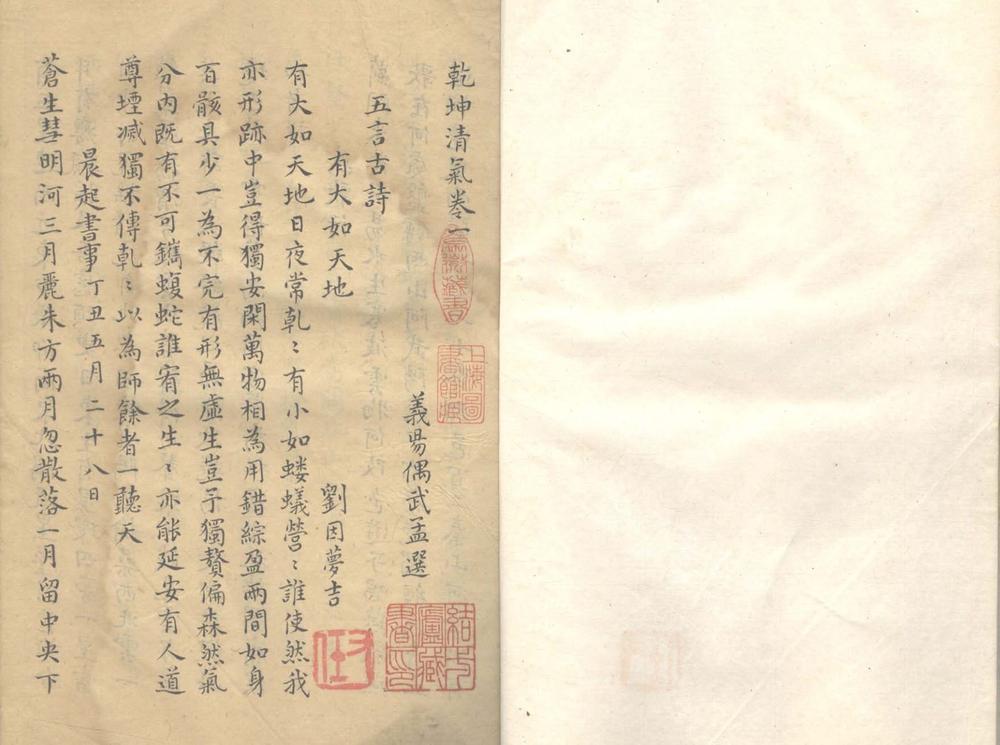 乾坤清氣卷一
義昜偶武孟選
五言古詩
有大如天地
劉因夢吉
有大如天地日夜常乹〻有小如螻蟻營〻誰使然我
亦形跡中豈得獨安閑萬物相為用錯綜盈兩間如身
百骸具少一為不完有形無虛生豈予獨贅偏森然氣
分內既有不可鑴蝮蛇誰宥之生〻亦能延安有人道
尊堙滅獨不傳乹〻以為師餘者一聽天
晨起書事丁丑五月二十八日
蒼生彗明河三月麗朱方兩月忽散落一月留中央下
上海圖書館藏
結一廬藏書印